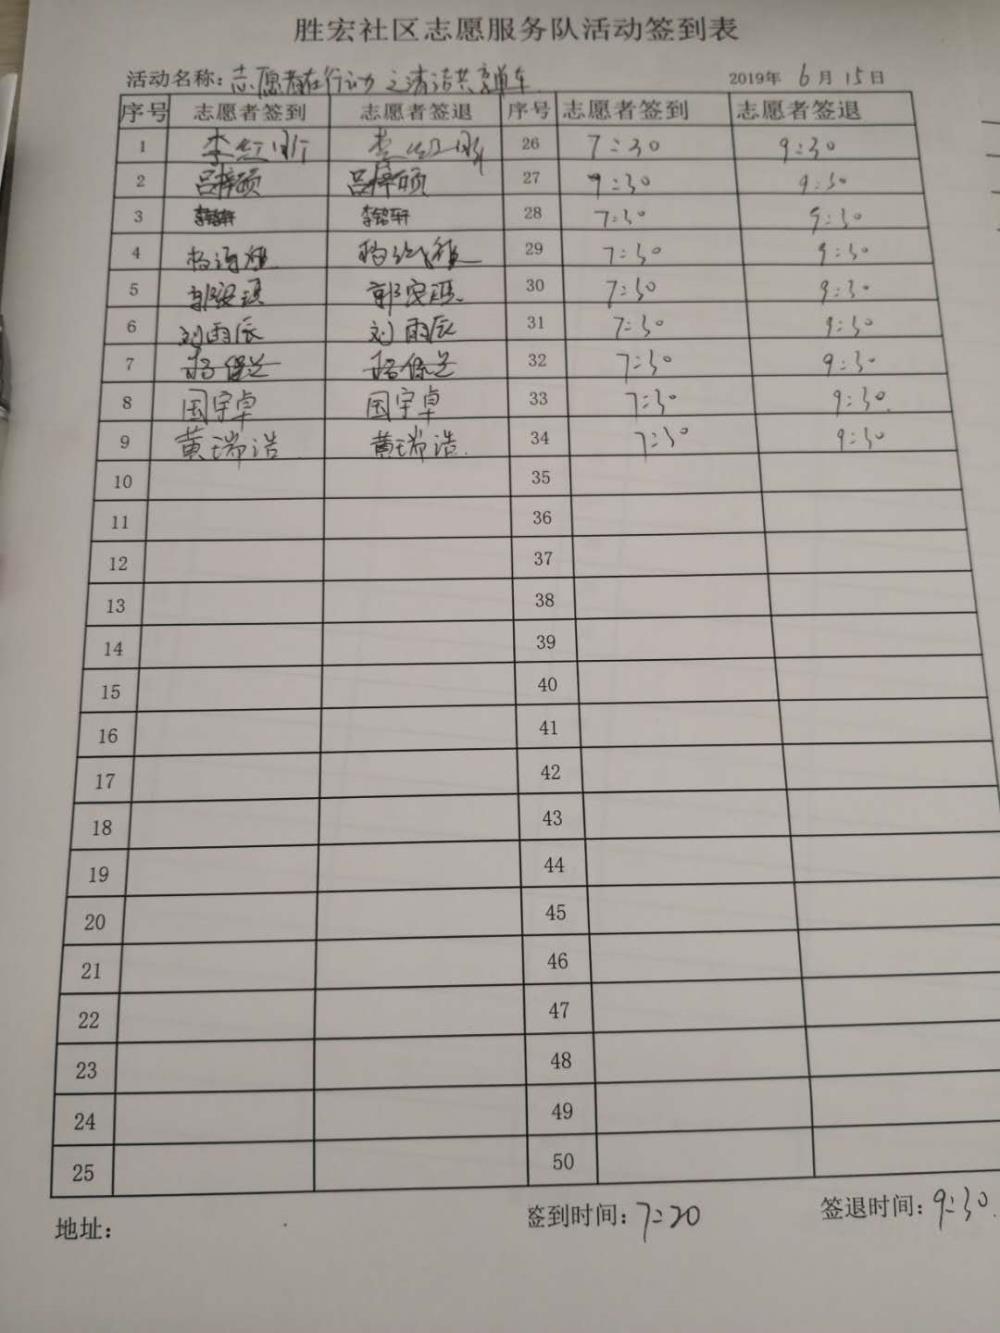 胜宏社区志愿服务队活动签到表
活动名称：志愿者在行动之清洁共享单车 2019年 6月 15日
序号 志愿者签到 志愿者签退 序号 志愿者签到 志愿者签退
1 26 7:30 9:30
2 吕梓硕 吕梓硕 27 9:30 9:30
3 李铭轩 李铭轩 28 7:30 9:30
4 29 7:30 9:30
5 30 7:30 9:30
6 刘雨辰 刘雨辰 31 7:30 9:30
7 32 7:30 9:30
8 国宇卓 国宇卓 33 7:30 9:30
9 黄瑞浩 黄瑞浩 34 7:30 9:30
10 35
11 36
12 37
13 38
14 39
15 40
16 41
17 42
18 43
19 44
20 45
21 46
22 47
23 48
24 49
25 50
地址： 签到时间：7:20 签退时间：9:30